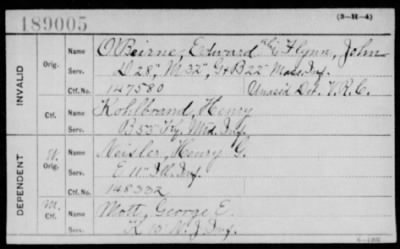 189005
(3-H-4)
INVALID
Orig.
Name O'Beirne, Edward "or" Flynn, John
Serv. D 28" M 32" G & B 22" Mass. Inf.
Ctf. No. 147580 Unas'd Det. V.R.C.
Ctf.
Name Kohlbrand, Henry
Serv. B 53" Ky. Mtd. Inf.
DEPENDENT
W.
Orig.
Name Neisler, Henry G.
Serv. E 11" Ill. Inf.
Ctf. No. 148332
M.
Ctf.
Name Mott, George E.
Serv. K 15" N.J. Inf.